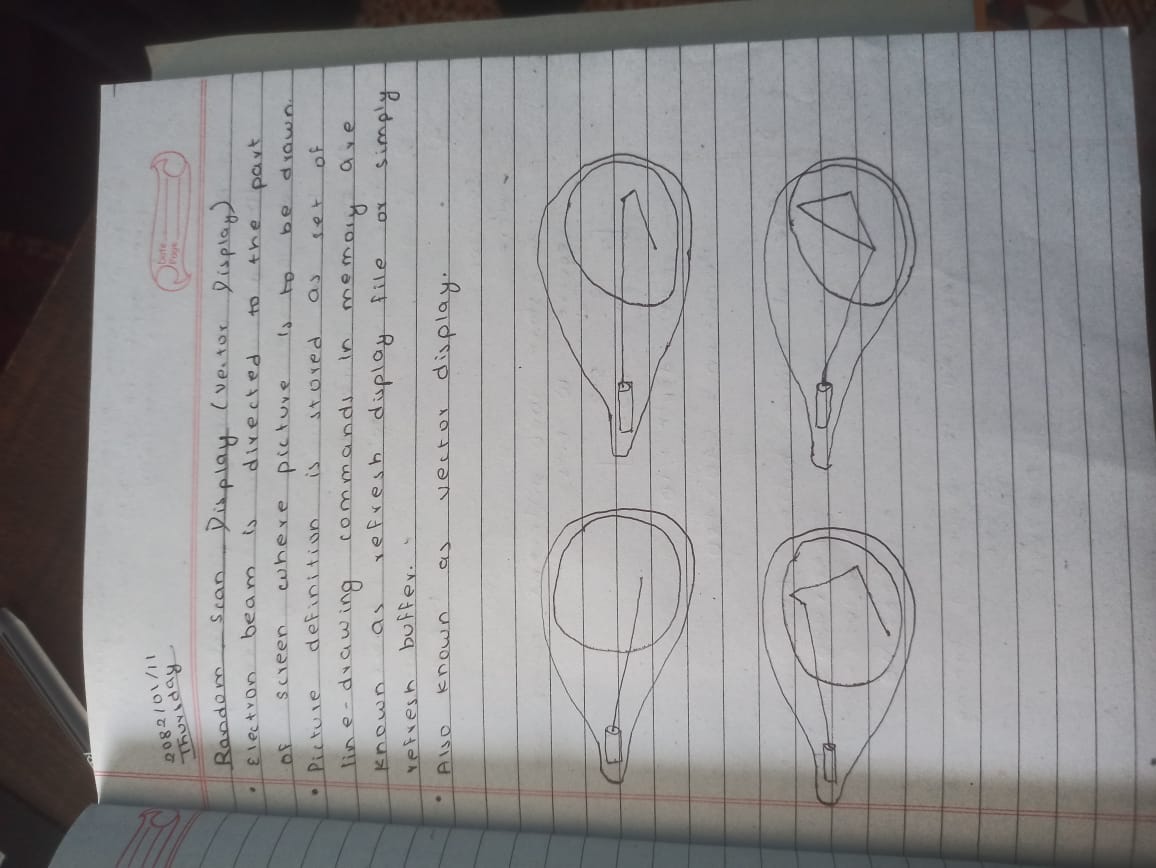 Date
Page
2082/01/11
Thursday
Random scan Display (vector Display)
• Electron beam is directed to the part
of screen where picture is to be drawn.
• Picture definition is stored as set of
line-drawing commands in memory are
known as refresh display file or simply
refresh buffer.
• Also known as vector display.